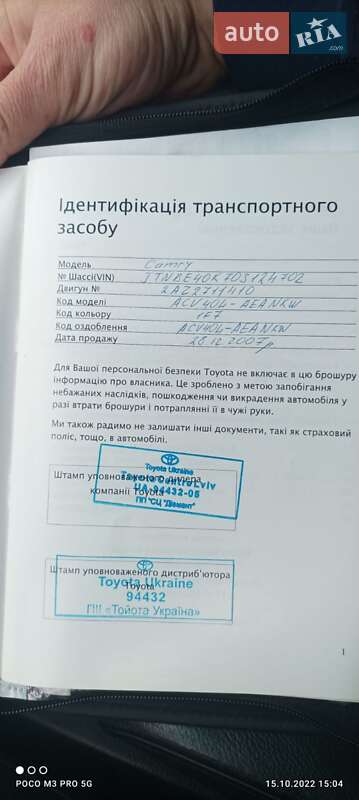 auto RIA.com
Ідентифікація транспортного
засобу
Модель Camry
№ Шассі(VIN) JTNBE40K703124702
Двигун № 2AZ2711410
Код моделі ACV40L-AEANKW
Код кольору 1F7
Код оздоблення ACV40L-AEANKW
Дата продажу 28.12.2007р
Для Вашої персональної безпеки Toyota не включає в цю брошуру
інформацію про власника. Це зроблено з метою запобігання
небажаних наслідків, пошкодження чи викрадення автомобіля у
разі втрати брошури і потраплянні її в чужі руки.
Ми також радимо не залишати інші документи, такі як страховий
поліс, тощо, в автомобілі.
Toyota Ukraine
Toyota Centre Lviv
Штамп уповноваженого дилера
UA-94432-05
компанії Toyota
ПП "СЦ "Діамант"
Штамп уповноваженого дистриб'ютора
Toyota
Toyota Ukraine
94432
ПІІ «Тойота Україна»
1
POCO M3 PRO 5G
15.10.2022 15:04